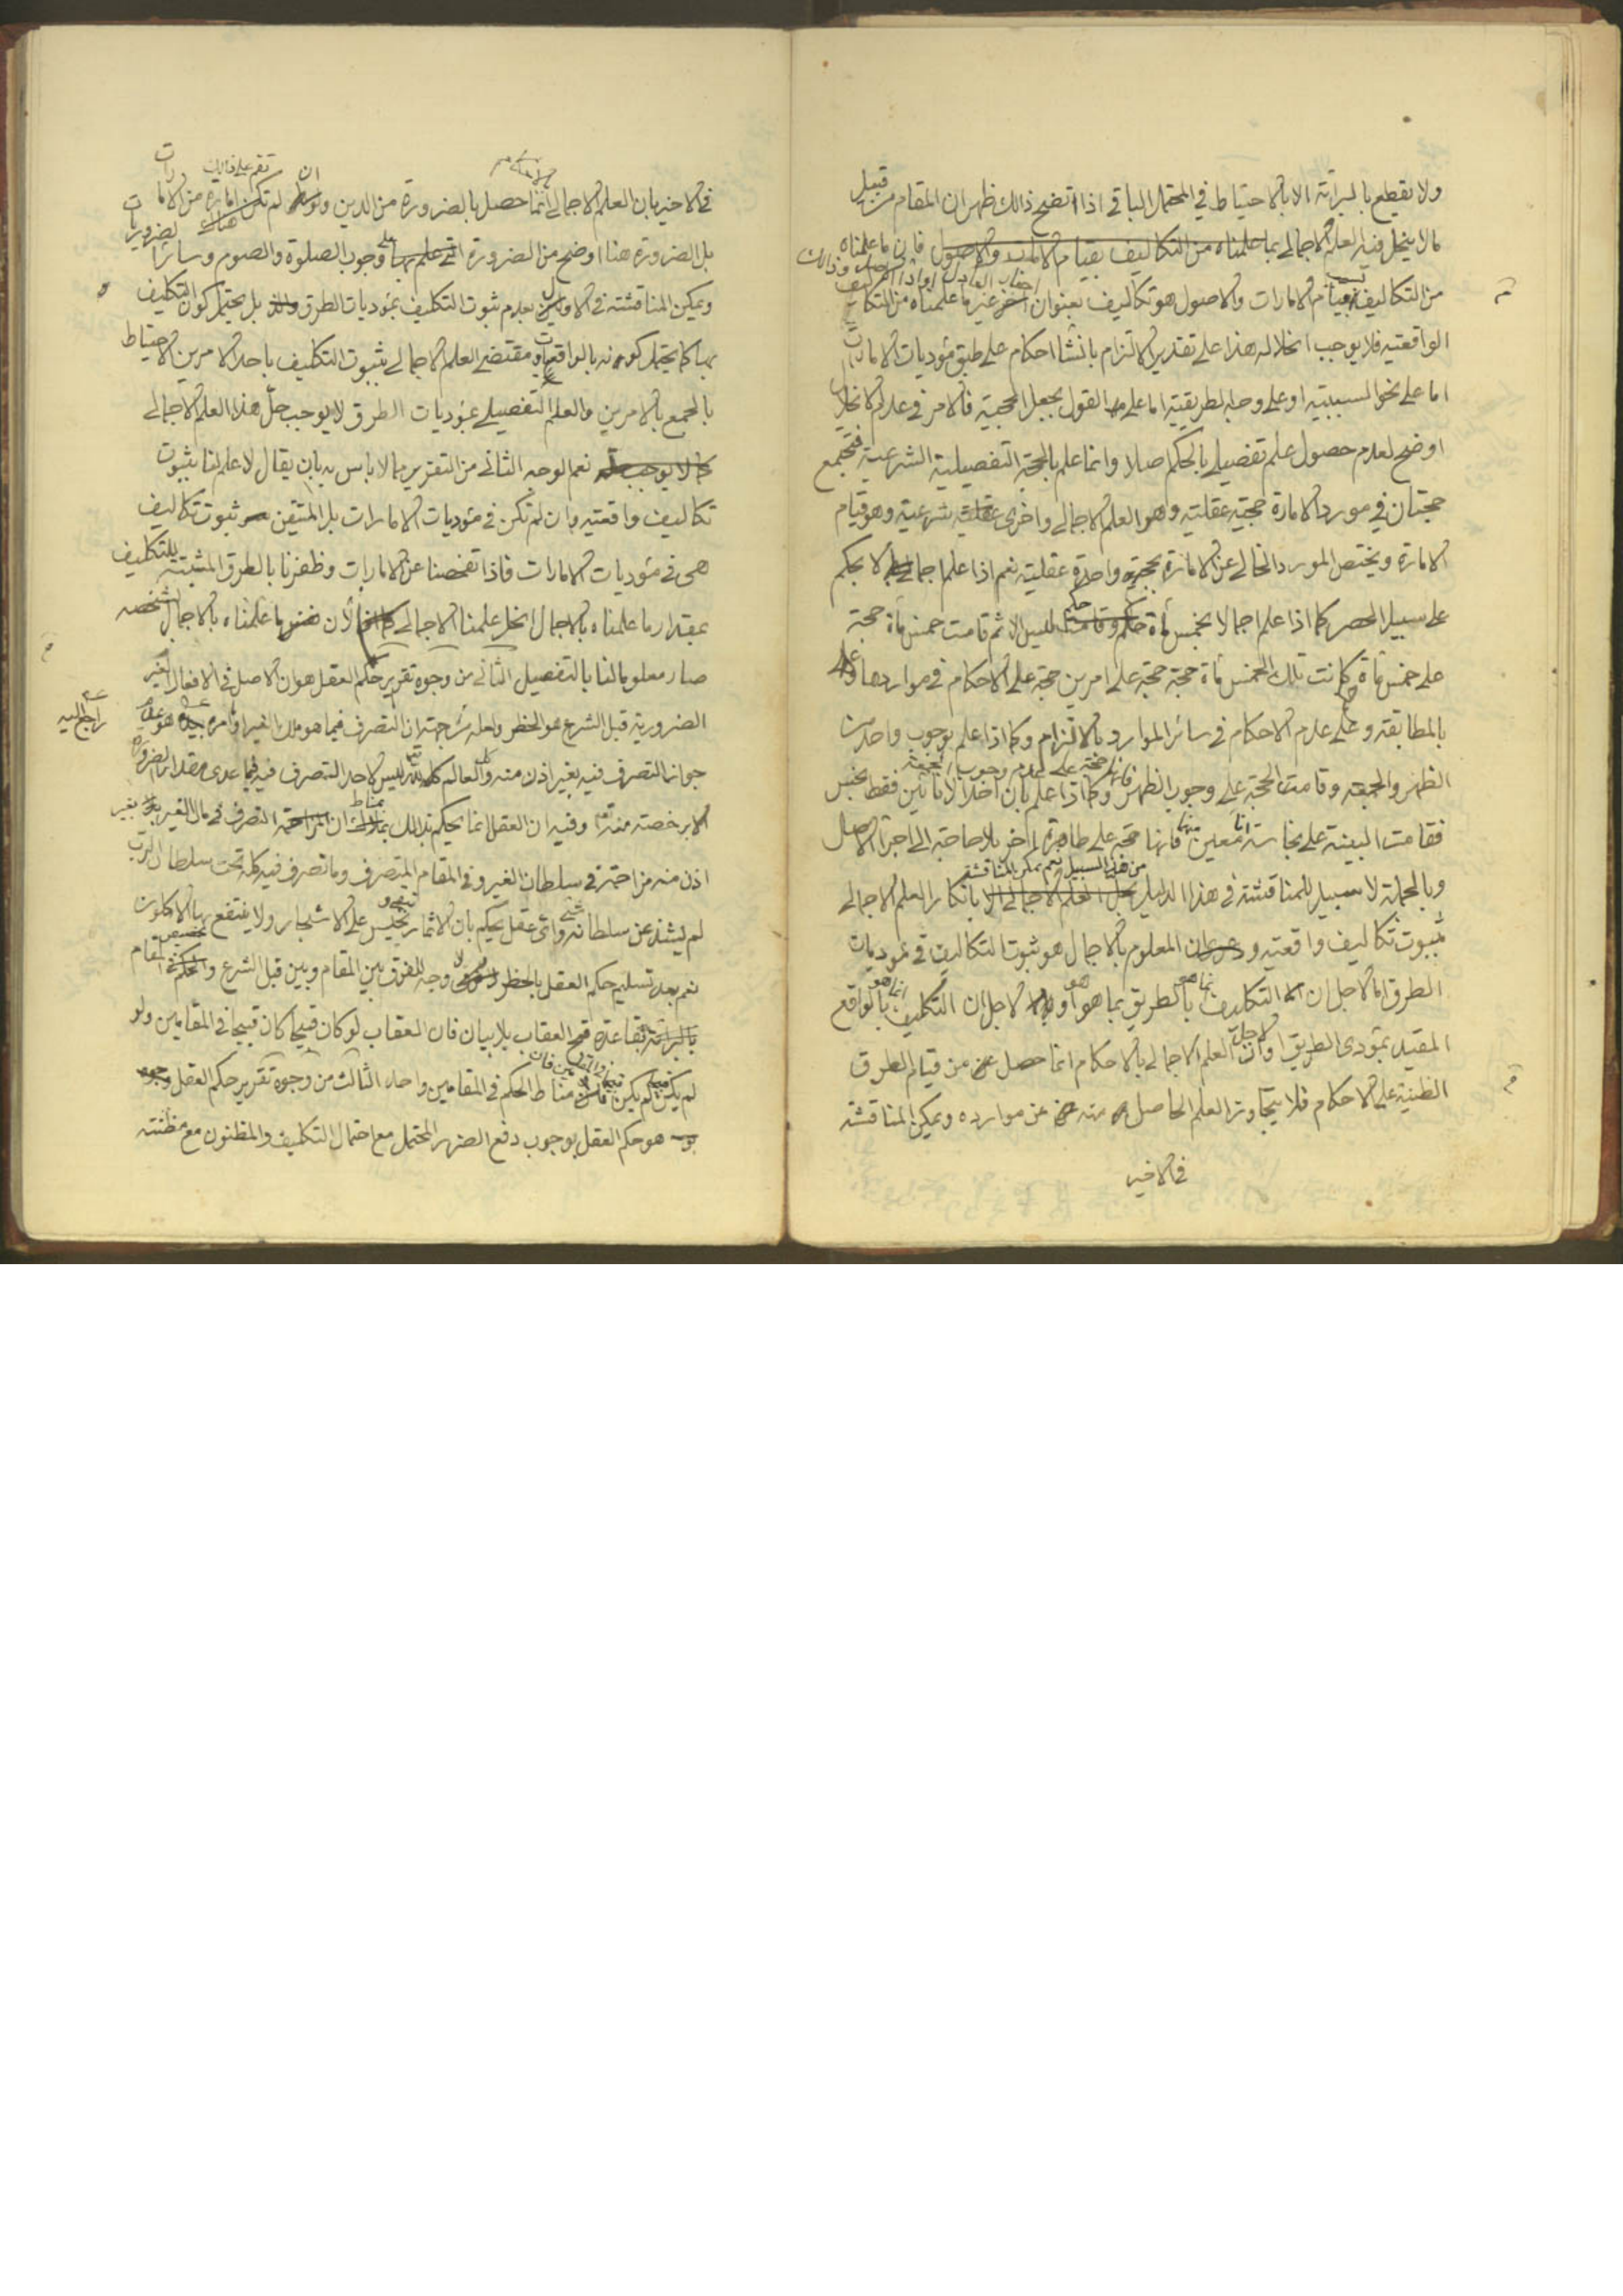 ولا يقطع بالبرائة الا بالاحتياط في المحتمل الباقي اذا اتضح ذالك ظهر ان المقام من قبيل
مالا ينحل فيه العلم الاجمالي بما علمناه من التكاليف بقيام الامارات والاصول فان ما علمناه
من التكاليف بقيام الامارات والاصول هو تكاليف بعنوان اخر غير ما علمناه من التكاليف
الواقعية فلا يوجب انحلاله هذا على تقدير الالتزام بانشاء احكام على طبق مؤديات الامارات
اما على نحو السببية او على وجه الطريقية اما على القول بجعل الحجية فالامر في عدم الانحلال
اوضح لعدم حصول علم تفصيلي بالحكم اصلا وانما علم بالحجة التفصيلية الشرعية فتجتمع
حجتان في مورد الامارة حجية عقلية وهو العلم الاجمالي واخرى شرعية وهو قيام
الامارة ويختص المورد الخالي عن الامارة بحجة واحدة عقلية نعم اذا علم اجمالا بحكم
على سبيل الحصر كما اذا علم اجمالا بخمس مأة حكم ليس الا ثم قامت خمس مأة حجة
على خمس مأة حكم كانت تلك الخمس مأة حجة حجة على امرين حجة على الاحكام في مواردها
بالمطابقة وعلى عدم الاحكام في سائر الموارد بالالتزام وكما اذا علم بوجوب واحد من
الظهر والجمعة وقامت الحجة على وجوب الظهر فانها حجة على عدم وجوب الجمعة وكما اذا علم بان احد الانائين فقط نجس
فقامت البينة على نجاسة اناء معين منهما فانها حجة على طاهرية الاخر بلا حاجة الى اجراء الاصل
وبالجملة لا سبيل للمناقشة في هذا الدليل من هذا السبيل نعم يمكن المناقشة بانكار العلم الاجمالي
بثبوت تكاليف واقعية وان المعلوم بالاجمال هو ثبوت التكاليف في مؤديات
الطرق اما لاجل ان التكليف انما هو بالطريق بما هو هو او لاجل ان التكليف انما هو بالواقع
المقيد بمؤدى الطريق او لاجل ان العلم الاجمالي بالاحكام انما حصل من قيام الطرق
الظنية على الاحكام فلا يتجاوز العلم الحاصل منه عن موارده ويمكن المناقشة
في الاخير
في الاخير بان العلم الاجمالي انما حصل بالضرورة من الدين وان لم تكن تقم على ذالك امارة من الامارات
بل الضرورة هنا اوضح من الضرورة على وجوب الصلوة والصوم وسائر الضروريات
ويمكن المناقشة في الاولين بعدم ثبوت التكليف بمؤديات الطرق بل يحتمل كون التكليف
بها كما يحتمل كونه بالواقعيات ومقتضى العلم الاجمالي بثبوت التكليف باحد الامرين الاحتياط
بالجمع بالامرين والعلم التفصيلي بمؤديات الطرق لا يوجب حل هذا العلم الاجمالي
نعم الوجه الثاني من التقرير مما لا باس به بان يقال لا علم لنا بثبوت
تكاليف واقعية وان لم تكن في مؤديات الامارات بل المتيقن ثبوت تكاليف
هى في مؤديات الامارات فاذا تفحصنا عن الامارات وظفرنا بالطرق المثبتة للتكليف
بمقدار ما علمناه بالاجمال انحل علمنا الاجمالي لان ما علمناه بالاجمال بشخصه
صار معلوما لنا بالتفصيل الثاني من وجوه تقرير حكم العقل هو ان الاصل في الافعال الغير
الضرورية قبل الشرع هو الحظر ولعله من جهة ان التصرف فيما هو ملك الغير وامره راجع اليه
جواز التصرف فيه بغير اذن منه والعالم كله لله تعالى ليس لاحد التصرف فيه فيما عدى مقدار الضرورة
الا برخصة منه تعالى وفيه ان العقل انما يحكم بذالك بمناط ان التصرف في مال الغير بغير
اذن منه مزاحمة في سلطان الغير وفي المقام المتصرف وما تصرف فيه كله تحت سلطان الرب
لم يشذ عن سلطانه شئ واى عقل يحكم بان الاثمار تيبس على الاشجار ولا ينتفع بها الاكلون
نعم بعد تسليم حكم العقل بالحظر لا وجه للفرق بين المقام وبين قبل الشرع وتخصيص المقام
بقاعدة قبح العقاب بلا بيان فان العقاب لو كان قبيحا كان قبيحا في المقامين ولو
لم يكن قبيحا لم يكن قبيحا في المقامين فان مناط الحكم في المقامين واحد الثالث من وجوه تقرير حكم العقل
هو حكم العقل بوجوب دفع الضرر المحتمل مع احتمال التكليف والمظنون مع مظنته